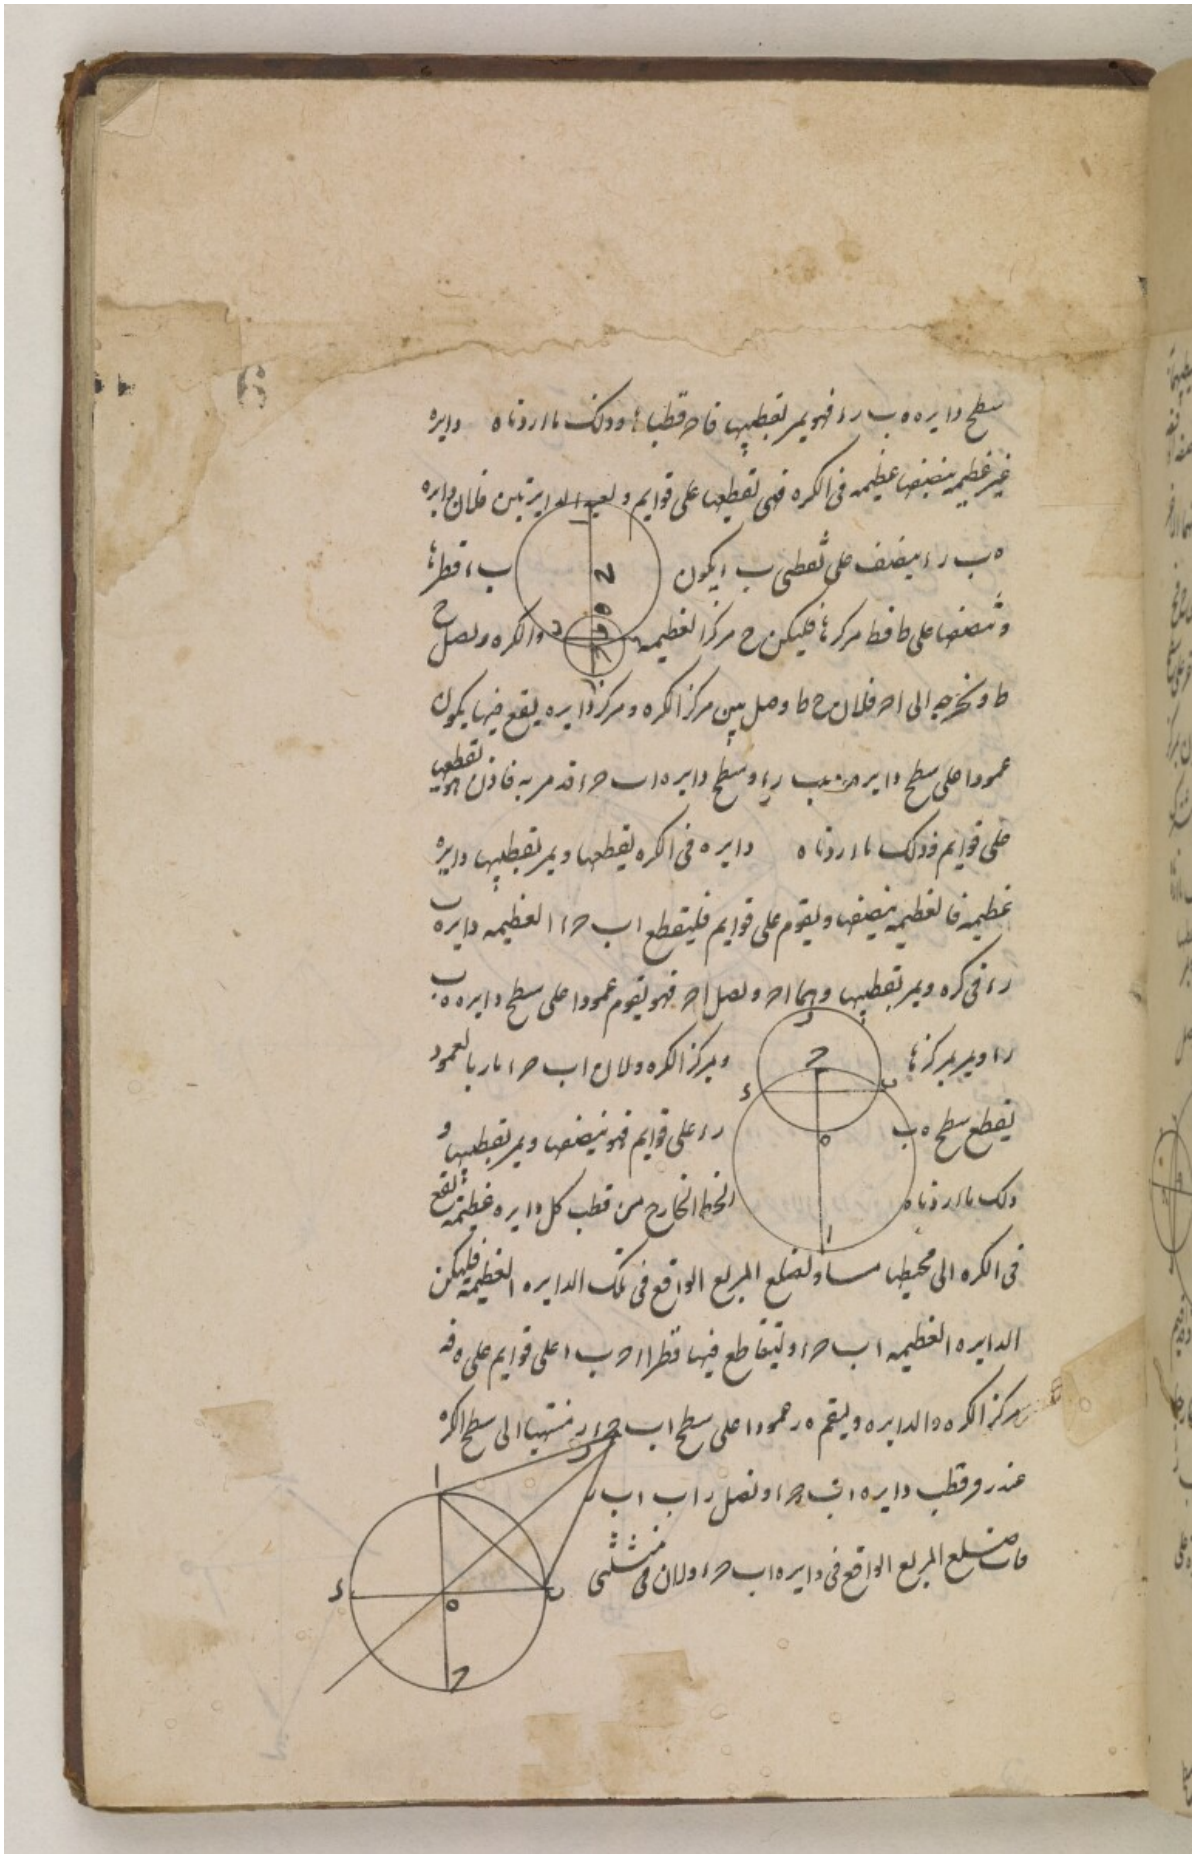 سطح دايره ه ب ر ء فهو يمر بقطبيها فا حـ قطباها وذلك ما اردناه دايره
غير عظيمه ينصفها عظيمه فى الكره فهى تقطعها على قوايم وليعد الدايرتين فلان دايره
ه ب ر ء ينصف على نقطتى ب ء يكون ب ء قطرها
وننصفها على ط فط مركزها فليكن ح مركز العظيمه والكره ونصل ح
ط ونخرجه الى ا حـ فلان ح ط وصل بين مركز الكره ومركز دايره يقع فيها يكون
عمودا على سطح دايره ه ب ر ء وسطح دايره ا ب حـ ء قد مر به فاذن هو يقطعها
على قوايم فذلك ما اردناه دايره فى الكره يقطعها ويمر بقطبيها دايره
عظيمه فالعظيمه ينصفها ويقوم على قوايم فليقطع ا ب حـ ء العظيمه دايره ه ب
ر ء فى كره ويمر بقطبيها وهما ا حـ ونصل ا حـ فهو يقوم عمودا على سطح دايره ه ب
ر ء ويمر بمركزها وبمركز الكره ولان ا ب حـ ء مار بالعمود
يقطع سطح ه ب ر ء على قوايم فهو ينصفها ويمر بقطبيها و
ذلك ما اردناه الخط الخارج من قطب كل دايره عظيمه يقع
فى الكره الى محيطها مساو لضلع المربع الواقع فى تلك الدايره العظيمه فليكن
الدايره العظيمه ا ب حـ ء وليتقاطع فيها قطرا ا حـ ب ء على قوايم على ه فه
مركز الكره والدايره وليقم ه ر عمودا على سطح ا ب حـ ء منتهيا الى سطح الكره
عند ر فر قطب دايره ا ب حـ ء ونصل ر ا ب ا ب ر
فا ب ضلع المربع الواقع فى دايره ا ب حـ ء ولان فى مثلثى